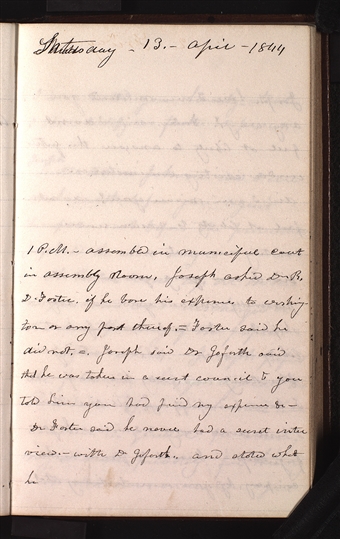 Saturday - 13. - April - 1844
1 P.M. - assembled in municipal court
in assembly Room. Joseph asked Dr R.
D. Foster. if he bore his expences to washing
ton or any part thereof. = Foster said he
did not. =. Joseph said Dr Goforth said
that he was taken in a secret council & you
told him you had paid my expences -
Dr Foster said he never had a secret inter
view - with Dr Goforth. and stated what
he